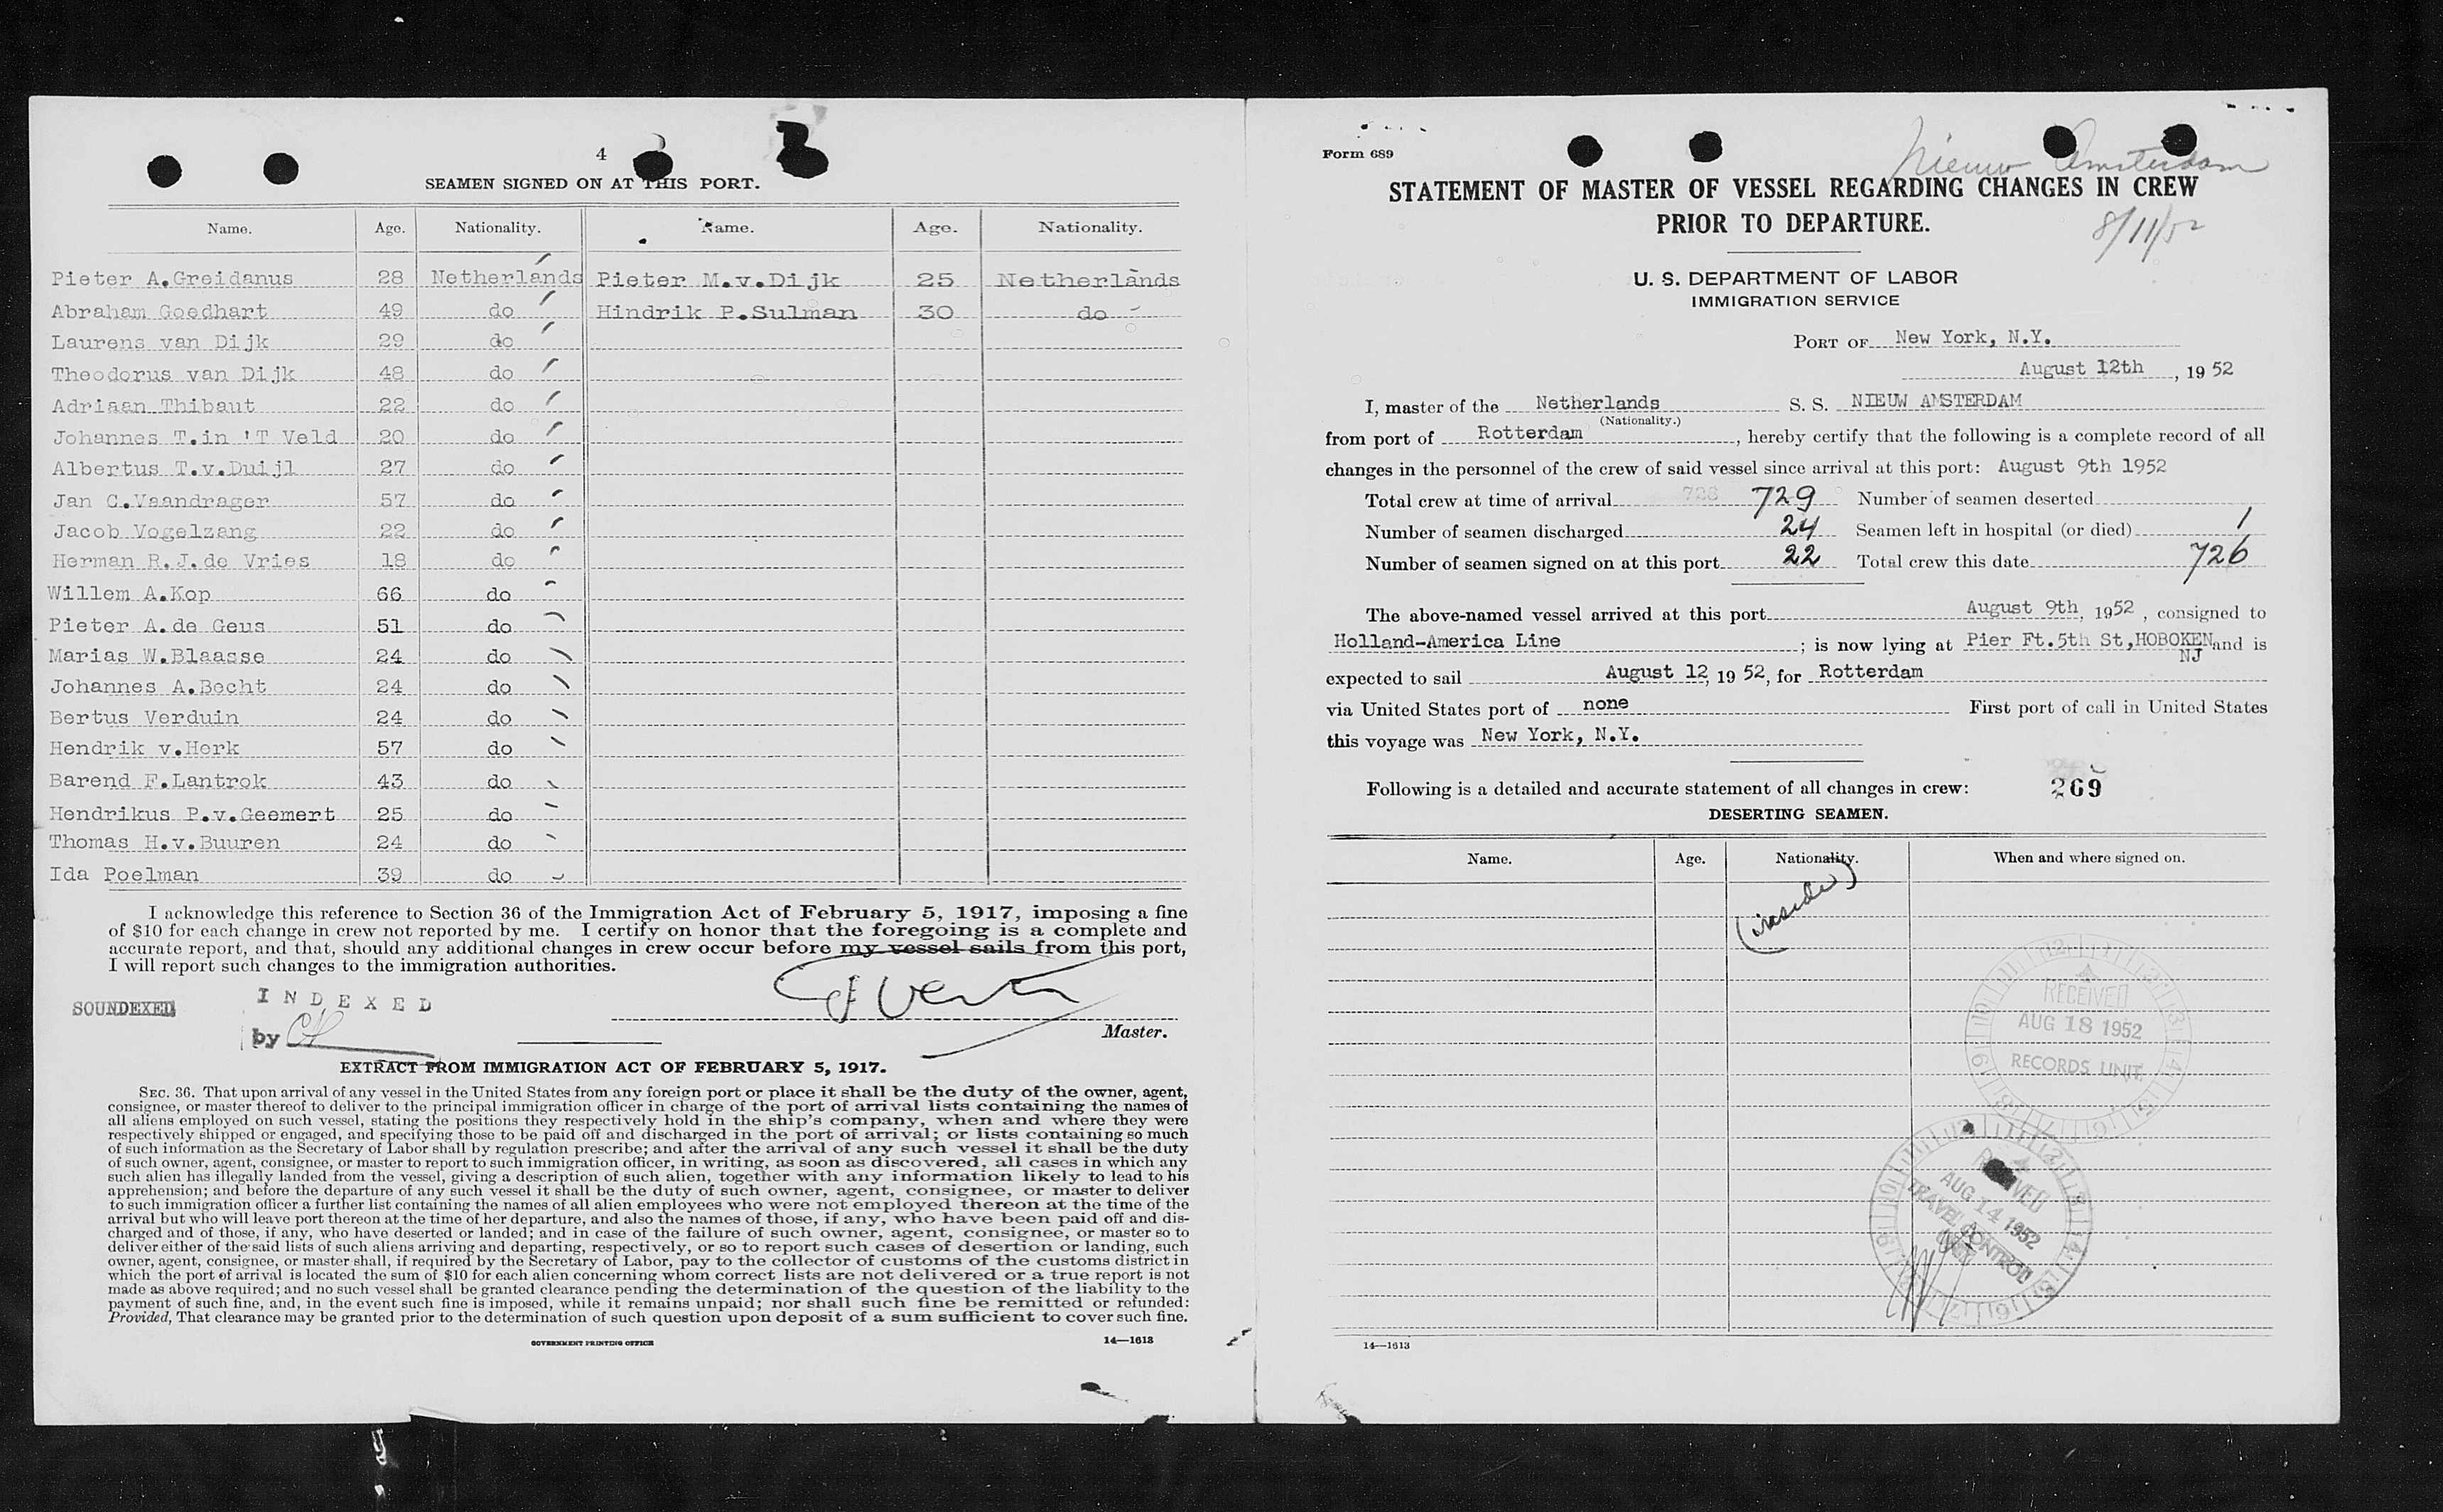 4
SEAMEN SIGNED ON AT THIS PORT.
Name. Age. Nationality. Name. Age. Nationality.
Pieter A.Greidanus 28 Netherlands Pieter M.v.Dijk 25 Netherlands
Abraham Goedhart 49 do Hindrik P.Sulman 30 do
Laurens van Dijk 29 do
Theodorus van Dijk 48 do
Adriaan Thibaut 22 do
Johannes T.in 'T Veld 20 do
Albertus T.v.Duijl 27 do
Jan C.Vaandrager 57 do
Jacob Vogelzang 22 do
Herman R.J.de Vries 18 do
Willem A.Kop 66 do
Pieter A.de Geus 51 do
Marias W.Blaasse 24 do
Johannes A.Becht 24 do
Bertus Verduin 24 do
Hendrik v.Herk 57 do
Barend F.Lantrok 43 do
Hendrikus P.v.Geemert 25 do
Thomas H.v.Buuren 24 do
Ida Poelman 39 do
I acknowledge this reference to Section 36 of the Immigration Act of February 5, 1917, imposing a fine
of $10 for each change in crew not reported by me. I certify on honor that the foregoing is a complete and
accurate report, and that, should any additional changes in crew occur before my vessel sails from this port,
I will report such changes to the immigration authorities.
SOUNDEXED
INDEXED
by
Master.
EXTRACT FROM IMMIGRATION ACT OF FEBRUARY 5, 1917.
SEC. 36. That upon arrival of any vessel in the United States from any foreign port or place it shall be the duty of the owner, agent,
consignee, or master thereof to deliver to the principal immigration officer in charge of the port of arrival lists containing the names of
all aliens employed on such vessel, stating the positions they respectively hold in the ship's company, when and where they were
respectively shipped or engaged, and specifying those to be paid off and discharged in the port of arrival; or lists containing so much
of such information as the Secretary of Labor shall by regulation prescribe; and after the arrival of any such vessel it shall be the duty
of such owner, agent, consignee, or master to report to such immigration officer, in writing, as soon as discovered, all cases in which any
such alien has illegally landed from the vessel, giving a description of such alien, together with any information likely to lead to his
apprehension; and before the departure of any such vessel it shall be the duty of such owner, agent, consignee, or master to deliver
to such immigration officer a further list containing the names of all alien employees who were not employed thereon at the time of the
arrival but who will leave port thereon at the time of her departure, and also the names of those, if any, who have been paid off and dis-
charged and of those, if any, who have deserted or landed; and in case of the failure of such owner, agent, consignee, or master so to
deliver either of the said lists of such aliens arriving and departing, respectively, or so to report such cases of desertion or landing, such
owner, agent, consignee, or master shall, if required by the Secretary of Labor, pay to the collector of customs of the customs district in
which the port of arrival is located the sum of $10 for each alien concerning whom correct lists are not delivered or a true report is not
made as above required; and no such vessel shall be granted clearance pending the determination of the question of the liability to the
payment of such fine, and, in the event such fine is imposed, while it remains unpaid; nor shall such fine be remitted or refunded:
Provided, That clearance may be granted prior to the determination of such question upon deposit of a sum sufficient to cover such fine.
GOVERNMENT PRINTING OFFICE 14—1613
Form 689
Nieuw Amsterdam
STATEMENT OF MASTER OF VESSEL REGARDING CHANGES IN CREW
PRIOR TO DEPARTURE.
8/11/52
U. S. DEPARTMENT OF LABOR
IMMIGRATION SERVICE
PORT OF New York, N.Y.
August 12th, 1952
I, master of the Netherlands S. S. NIEUW AMSTERDAM
(Nationality.)
from port of Rotterdam, hereby certify that the following is a complete record of all
changes in the personnel of the crew of said vessel since arrival at this port: August 9th 1952
Total crew at time of arrival 729 Number of seamen deserted
Number of seamen discharged 24 Seamen left in hospital (or died) 1
Number of seamen signed on at this port 22 Total crew this date 726
The above-named vessel arrived at this port August 9th, 1952, consigned to
Holland-America Line; is now lying at Pier Ft.5th St,HOBOKEN and is
NJ
expected to sail August 12, 1952, for Rotterdam
via United States port of none First port of call in United States
this voyage was New York, N.Y.
Following is a detailed and accurate statement of all changes in crew: 269
DESERTING SEAMEN.
Name. Age. Nationality. When and where signed on.
(inside)
RECEIVED
AUG 18 1952
RECORDS UNIT
RECEIVED
AUG 14 1952
TRAVEL CONTROL
14—1613